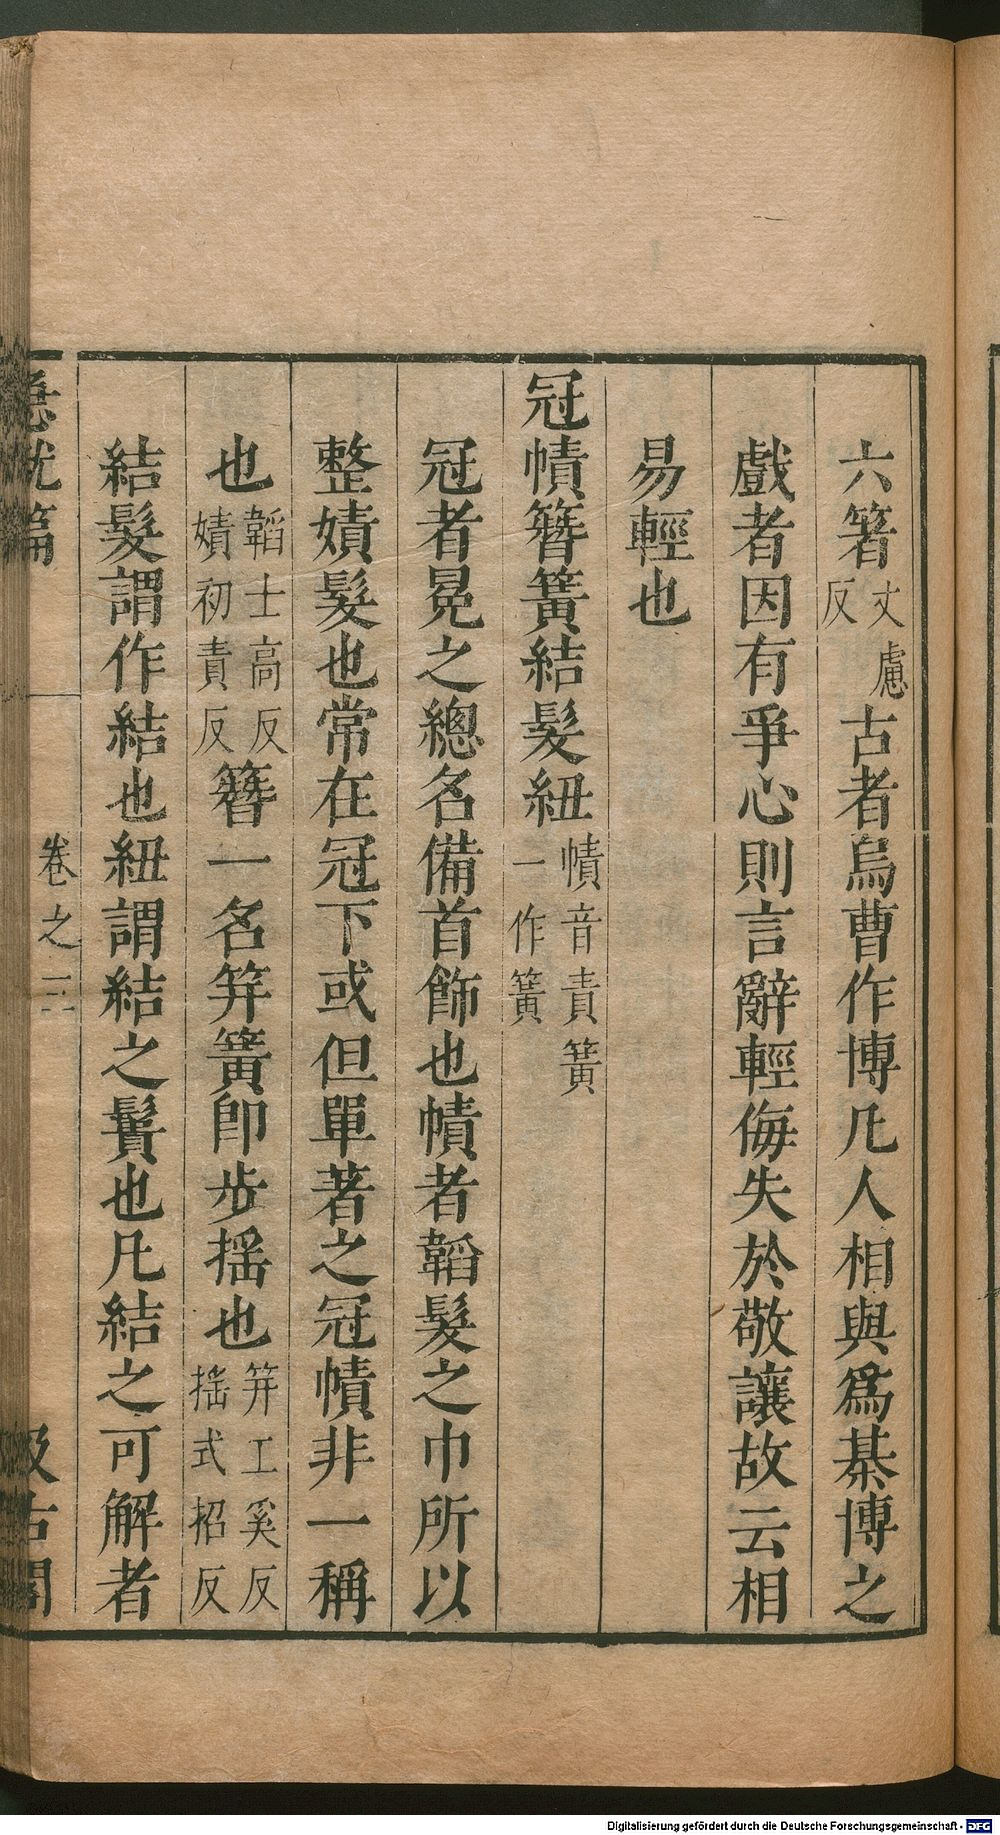 六箸丈慮反古者烏曹作博凡人相與爲棊博之
戲者因有爭心則言辭輕侮失於敬讓故云相
易輕也
冠幘簪簧結髮紐幘音責簧一作簧
冠者冕之總名備首飾也幘者韜髮之巾所以
整嫧髮也常在冠下或但單著之冠幘非一稱
也韜士高反嫧初責反簪一名筓簧卽步揺也筓工奚反揺式招反
結髮謂作結也紐謂結之鬢也凡結之可解者
急就篇 卷之三 汲古閣
Digitalisierung gefördert durch die Deutsche Forschungsgemeinschaft - DFG